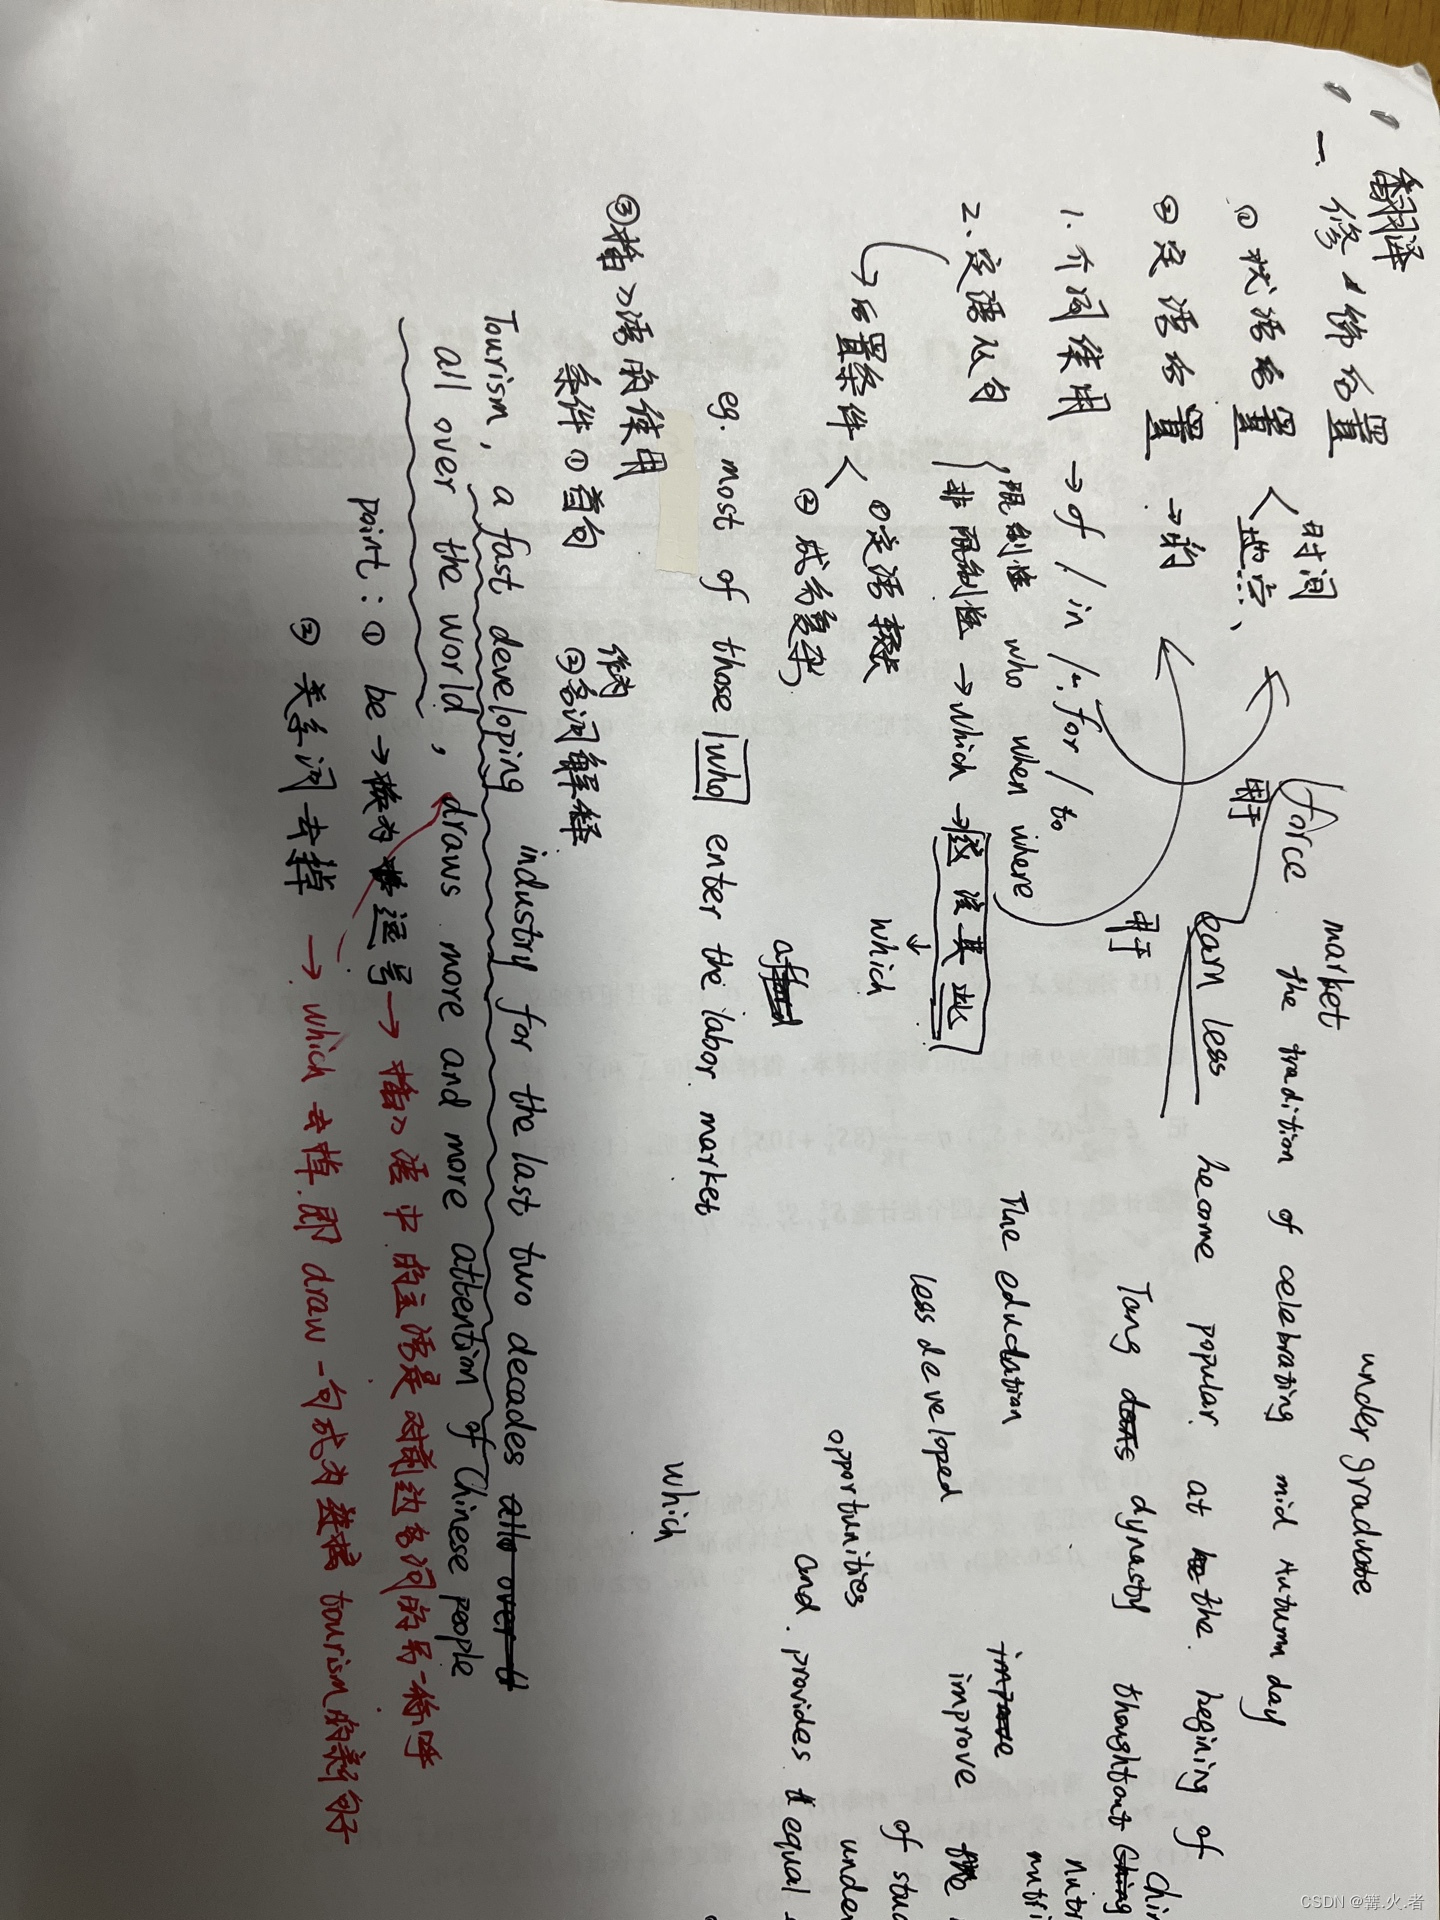 翻译
一、修饰后置
① 状语后置
时间
地点
② 定语后置 → 的
1. 介词使用 → of / in / for / to
2. 定语从句
限制性 who when where
非限制性 → which →
which
后置条件
① 定语较长
② 成分复杂
eg. most of those who enter the labor market
③ 插入语的使用
条件 ① 首句
作为
② 名词解释
Tourism, a fast developing industry for the last two decades
all over the world, draws more and more attention of Chinese people
point: ① be → 换为逗号 → 插入语中的主语是对前边名词的另一称呼
② 关系词去掉 → which 去掉. 即 draw 一句成为 tourism的新句子
用于
用于
force
market
earn less
undergraduate
the tradition of celebrating mid Autumn day
become popular at the begining of
Tang dynasty
The education
less developed
improve
opportunities
and provides equal
which
of
CSDN @篝.火.者